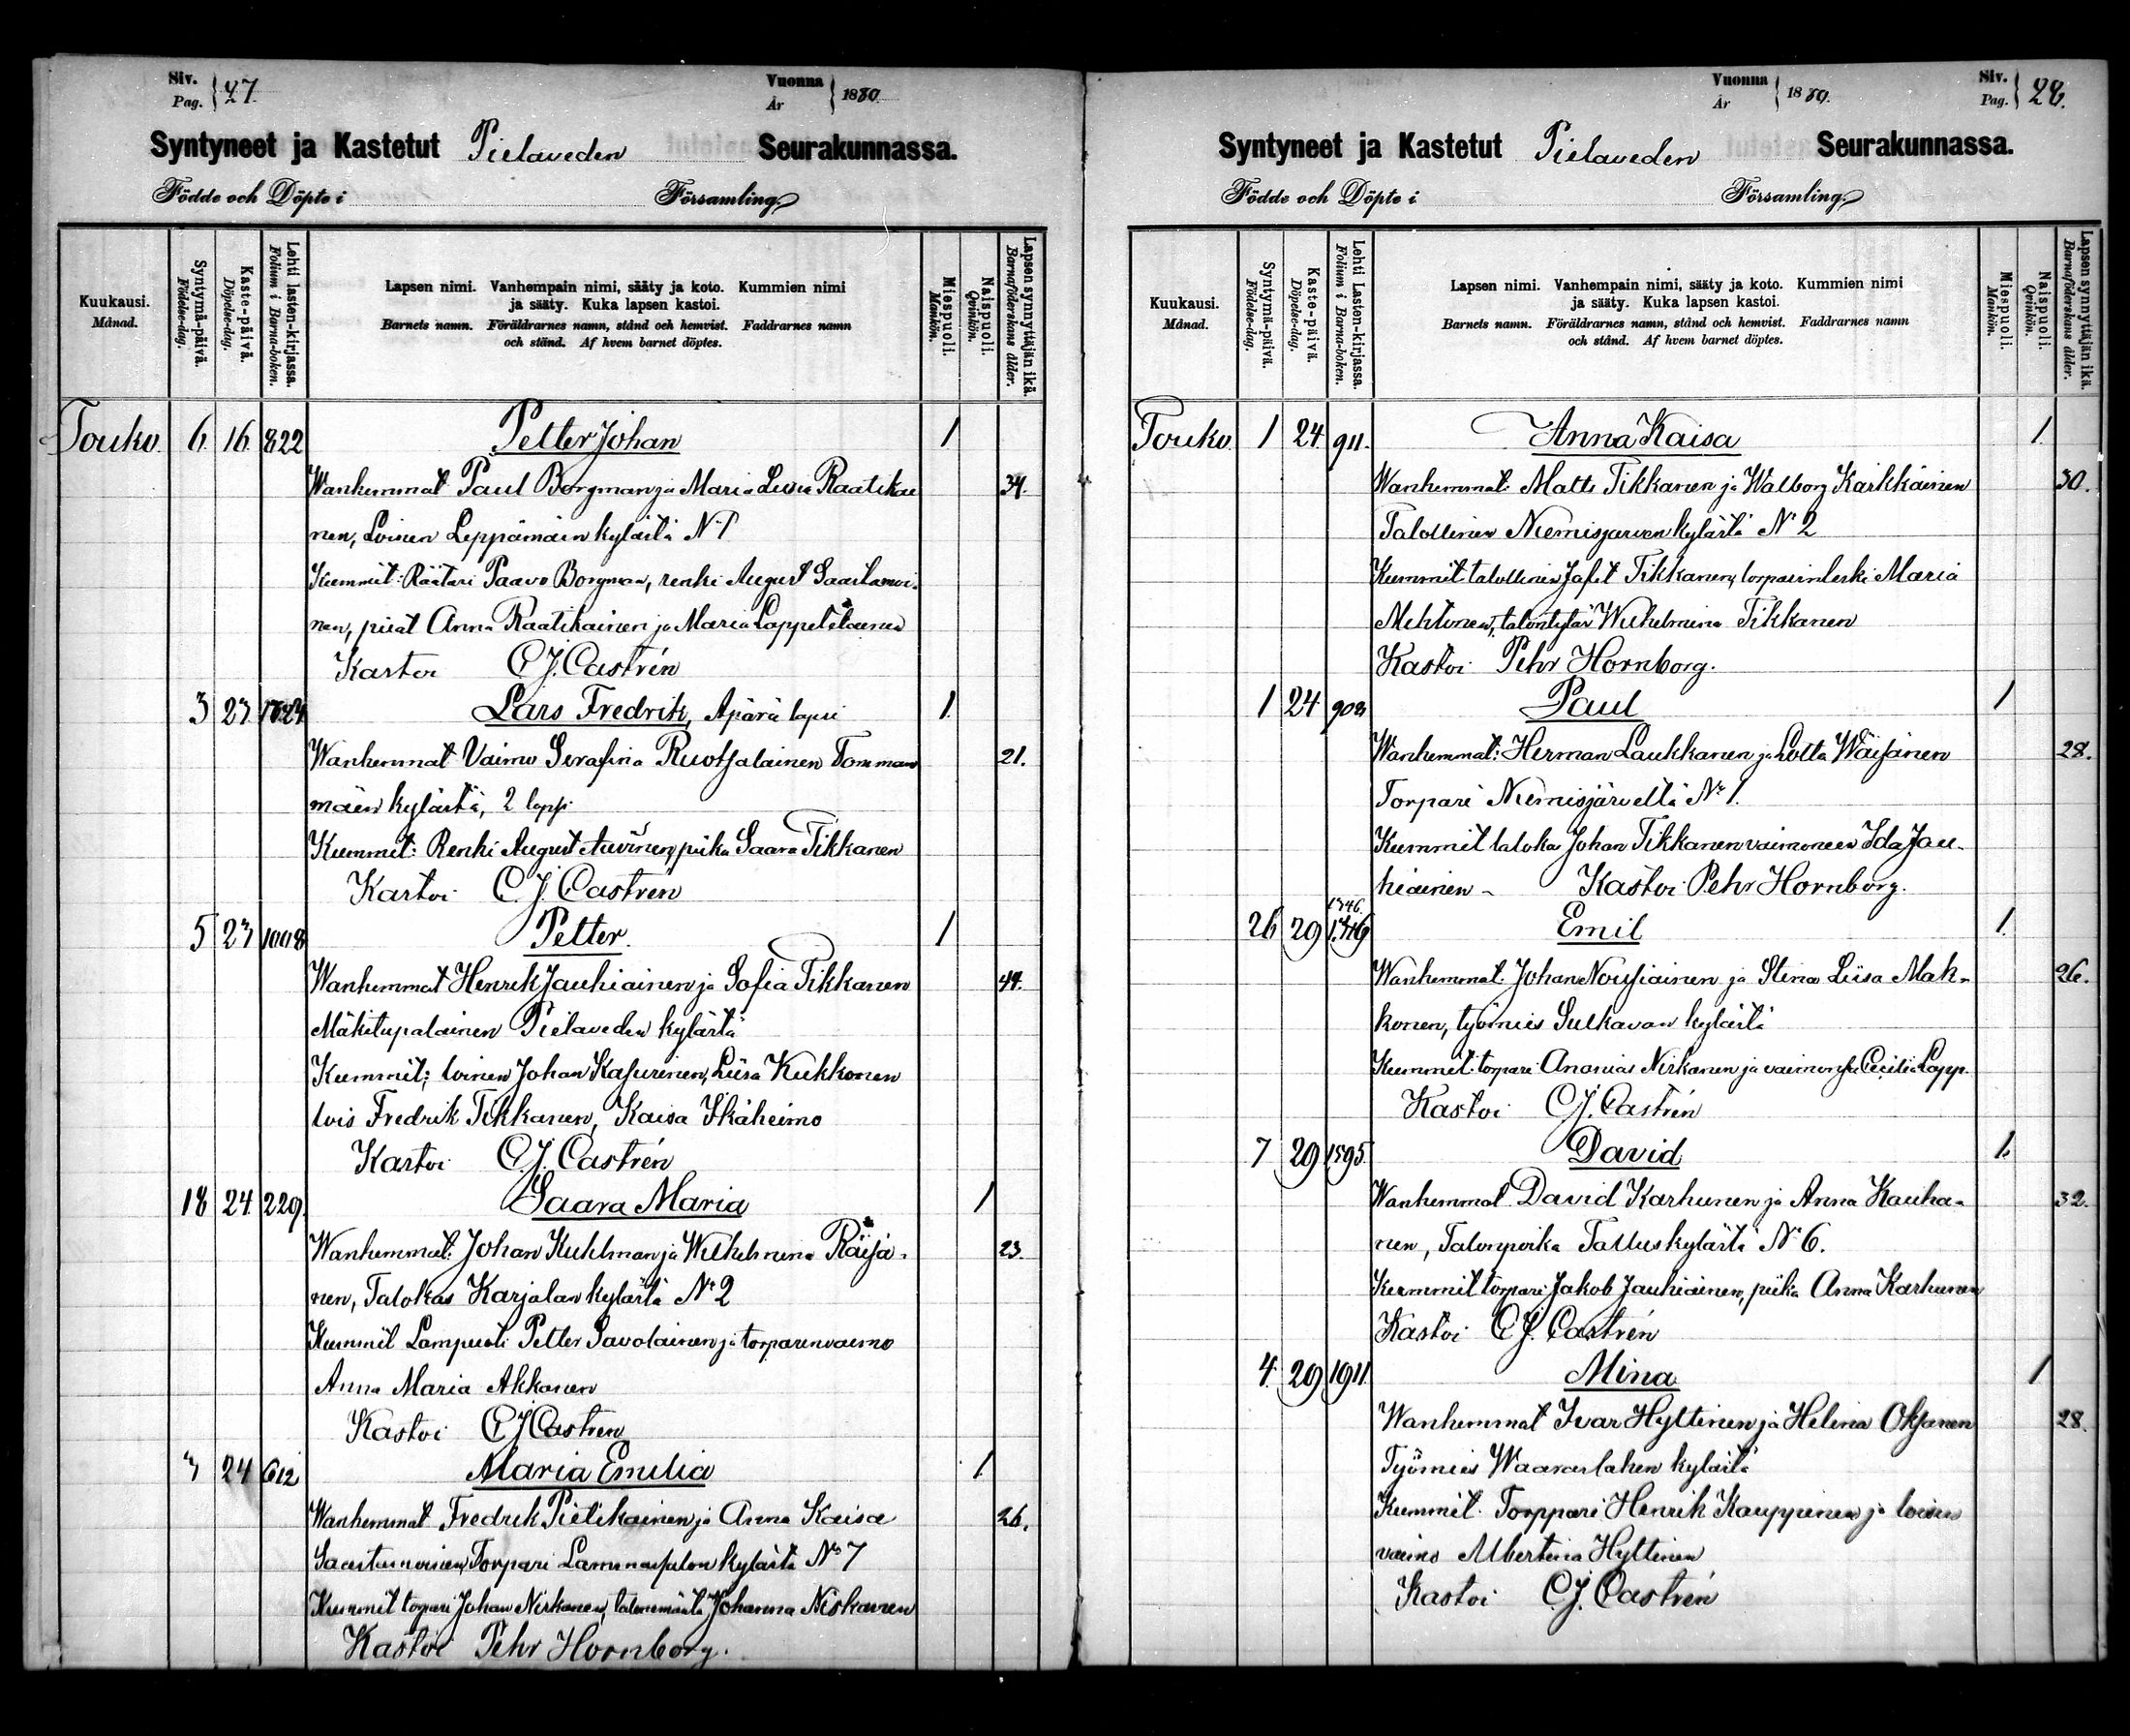 Siv. Pag. 27. Vuonna År 1880.
Syntyneet ja Kastetut Pielaveden Seurakunnassa.
Födde och Döpte i Församling.
Kuukausi. Månad.
Syntymä-päivä. Födelse-dag.
Kaste-päivä. Döpelse-dag.
Lehti lasten-kirjassa. Folium i Barna-boken.
Lapsen nimi. Vanhempain nimi, sääty ja koto. Kummien nimi
ja sääty. Kuka lapsen kastoi.
Barnets namn. Föräldrarnes namn, stånd och hemvist. Faddrarnes namn
och stånd. Af hvem barnet döptes.
Miespuoli. Mankön.
Naispuoli. Qvinkön.
Lapsen synnyttäjän ikä. Barnaföderskans ålder.
Touko. 6. 16. 822 Petter Johan 1
Wanhemmat Paul Borgman ja Maria Lovisa Raatikai 34.
nen, Loinen Leppämäin kylästä N:1
Kummit: Räätäri Paavo Borgman, renki August Saastamoi-
nen, piiat Anna Raatikainen ja Maria Lappeteläinen
Kastoi C J. Castrén
3 23 Lars Fredrik, Äpärä lapsi 1.
Wanhemmat Vaimo Serafina Ruotsalainen Tomman 21.
mäen kylästä, 2 laps.
Kummit: Renki August Auvinen, piika Saara Tikkanen
Kastoi C. J. Castrén
5 23 1008 Petter. 1
Wanhemmat Henrik Jauhiainen ja Sofia Tikkanen 44.
Mäkitupalainen Pielaveden kylästä
Kummit; loinen Johan Kasurinen, Liisa Kukkonen
lois Fredrik Tikkanen, Kaisa Ikäheimo
Kastoi C. J. Castrén
18 24 229. Saara Maria 1
Wanhemmat: Johan Kuhlman ja Wilhelmina Räisä- 23.
nen, Talokas Karjalan kylästä N:o 2
Kummit Lampuoti Petter Savolainen ja torparinvaimo
Anna Maria Akkanen
Kastoi C J Castren
3 24 612 Maria Emilia 1.
Wanhemmat Fredrik Pietikainen ja Anna Kaisa 26.
Saastamoinen, Torpari Lammassalon kylästä N:o 7
Kummit torpari Johan Niskanen, talonemäntä Johanna Niskanen
Kastoi Pehr Hornborg.
Vuonna År 1880. Siv. Pag. 28.
Syntyneet ja Kastetut Pielaveden Seurakunnassa.
Födde och Döpte i Församling.
Kuukausi. Månad.
Syntymä-päivä. Födelse-dag.
Kaste-päivä. Döpelse-dag.
Lehti Lasten-kirjassa. Folium i Barna-boken.
Lapsen nimi. Vanhempain nimi, sääty ja koto. Kummien nimi
ja sääty. Kuka lapsen kastoi.
Barnets namn. Föräldrarnes namn, stånd och hemvist. Faddrarnes namn
och stånd. Af hvem barnet döptes.
Miespuoli. Mankön.
Naispuoli. Qvinkön.
Lapsen synnyttäjän ikä. Barnaföderskans ålder.
Touko. 1 24 911. Anna Kaisa 1.
Wanhemmat: Matts Tikkanen ja Walborg Kärkkäinen 30.
Talollinen Niemisjärven kylästä N:o 2
Kummit talollinen Jafet Tikkanen, torparinleski Maria
Miktinen, talontytär Wilhelmina Tikkanen
Kastoi Pehr Hornborg.
1 24 903 Paul 1
Wanhemmat: Herman Laukkanen ja Lotta Wäisänen 28.
Torpari Niemisjärveltä N:r 1.
Kummit talokas Johan Tikkanen vaimoneen Ida Jau-
hiainen - Kastoi Pehr Hornborg.
1346.
26 29 Emil 1.
Wanhemmat. Johan Nousiainen ja Stina Liisa Mak- 26.
konen, työmies Sulkavan kylästä
Kummit. torpari Ananias Niskanen ja vaimonsa Cecilia Lapp.
Kastoi C J. Castrén
7 29 1595. David 1.
Wanhemmat. David Karhunen ja Anna Kauha- 32.
nen, Talonpoika Tallus kylästä N:o 6.
Kummit torpari Jakob Jauhiainen, piika Anna Karhunen
Kastoi C J. Castrén
4. 29 1911. Mina 1
Wanhemmat Ivar Hyttinen ja Helena Oksanen 28.
Työmies Waaraslahen kylästä
Kummit. Torppari Henrik Kauppinen ja loisen
vaimo Albertina Hyttinen
Kastoi C. J. Castrén